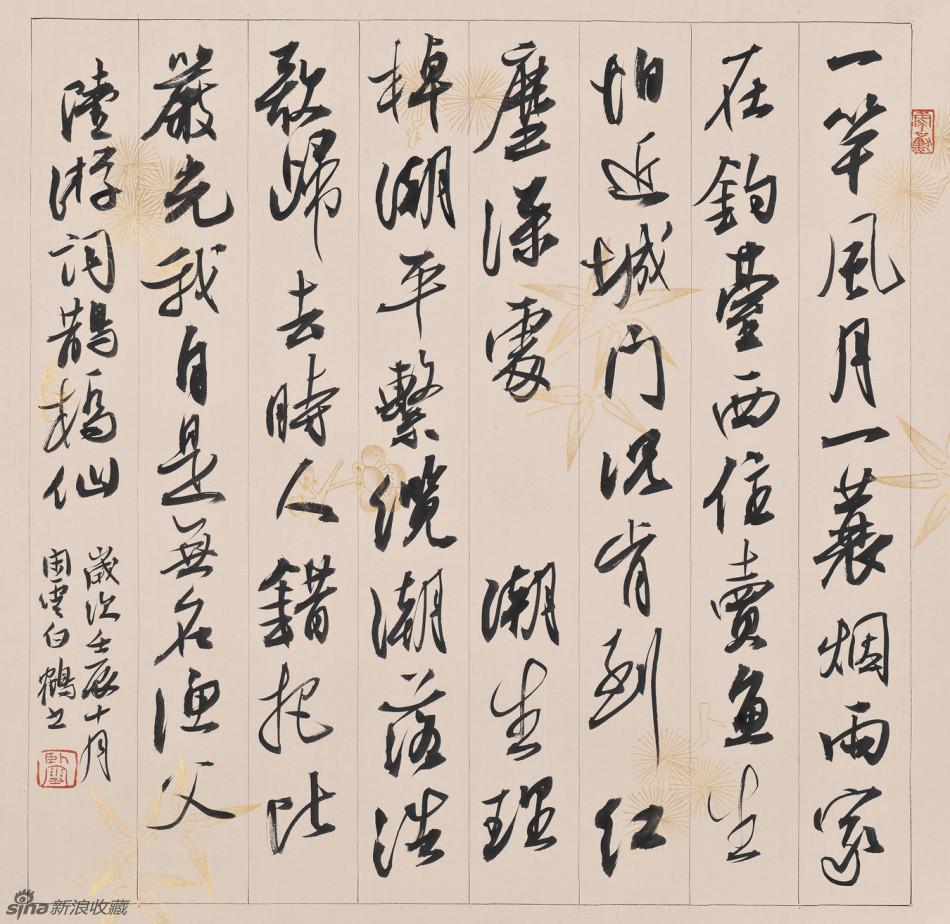 一竿風月一蓑烟雨家
在釣臺西住賣魚生
怕近城門況肯到紅
塵深處 潮生理
棹潮平繫纜潮落浩
歌歸去時人錯把比
嚴光我自是無名漁父
陸游詞鵲橋仙
歲次壬辰十月
閑雲白鶴書
sina新浪收藏